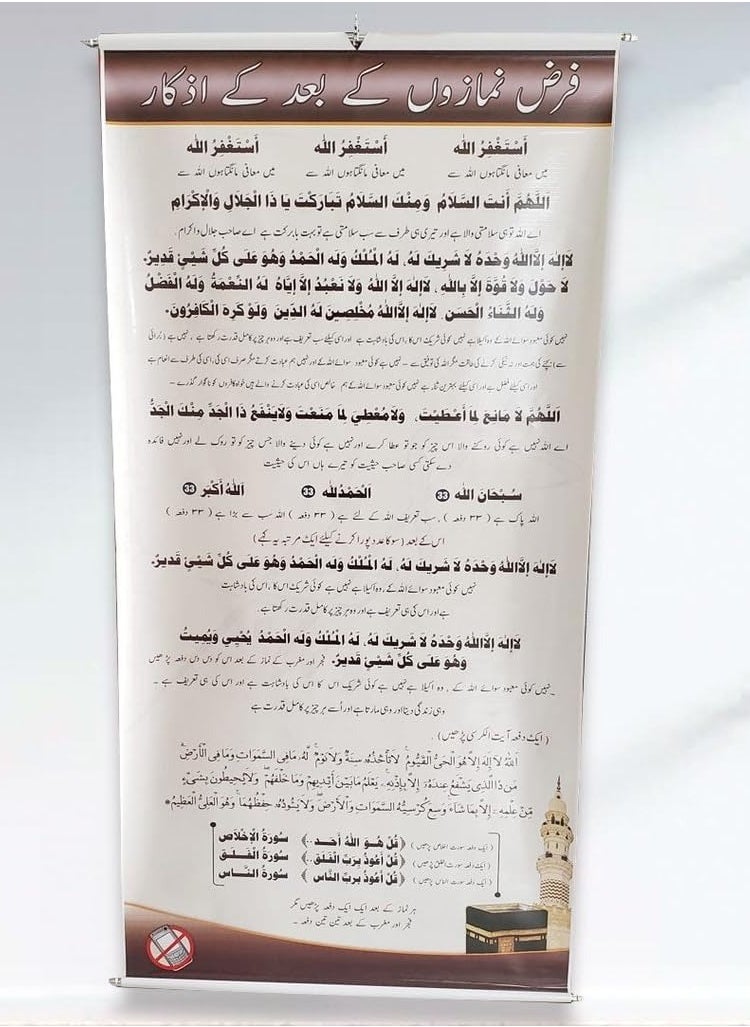 فرض نمازوں کے بعد کے اذکار
أَسْتَغْفِرُ الله أَسْتَغْفِرُ الله أَسْتَغْفِرُ الله
میں معافی مانگتا ہوں اللہ سے میں معافی مانگتا ہوں اللہ سے میں معافی مانگتا ہوں اللہ سے
اَللّٰهُمَّ أَنتَ السَّلَامُ وَمِنْكَ السَّلَامُ تَبَارَكْتَ يَا ذَا الْجَلَالِ وَالْإِكْرَامِ
اے اللہ تو ہی سلامتی والا ہے اور تیری ہی طرف سے سب سلامتی ہے تو بہت بابرکت ہے اے صاحب جلال و اکرام۔
لَاإِلٰهَ إِلَّااللهُ وَحْدَهُ لَا شَرِيكَ لَهُ، لَهُ الْمُلْكُ وَلَه الْحَمْدُ وَهُوَ عَلَى كُلِّ شَيْئٍ قَدِيرٌ۔
لَا حَوْلَ وَلَا قُوَّةَ إِلَّا بِاللهِ، لَاإِلٰهَ إِلَّا اللهُ وَلَا نَعْبُدُ إِلَّا إِيَّاهُ لَهُ النِّعْمَةُ وَلَهُ الْفَضْلُ
وَلَهُ الثَّنَاءُ الْحَسَن، لَاإِلٰهَ إِلَّااللهُ مُخْلِصِينَ لَهُ الدِّينَ وَلَوْ كَرِهَ الْكَافِرُونَ۔
نہیں کوئی معبود سوائے اللہ کے وہ اکیلا ہے نہیں کوئی شریک اس کا، اس کی بادشاہت ہے اور اسی کیلئے سب تعریف ہے اور وہ ہر چیز پر کامل قدرت رکھتا ہے، نہیں ہے (برائی
سے) بچنے کی ہمت اور نہ نیکی کرنے کی طاقت مگر اللہ کی توفیق سے۔ نہیں ہے کوئی معبود سوائے اللہ کے اور نہیں ہم عبادت کرتے مگر صرف اسی کی، اسی کی طرف سے انعام ہے
اور اسی کیلئے فضل ہے اور اسی کیلئے بہترین ثناء ہے نہیں کوئی معبود سوائے اللہ کے ہم خالص اسی کی عبادت کرنے والے ہیں خواہ کافروں کو ناگوار گذرے۔
اَللّٰهُمَّ لَا مَانِعَ لِمَا أَعْطَيْتَ، وَلَامُعْطِيَ لِمَا مَنَعْتَ وَلَايَنْفَعُ ذَا الْجَدِّ مِنْكَ الْجَدُّ
اے اللہ نہیں ہے کوئی روکنے والا اس چیز کو جو تو عطا کرے اور نہیں ہے کوئی دینے والا جس چیز کو تو روک لے اور نہیں فائدہ
دے سکتی کسی صاحب حیثیت کو تیرے ہاں اس کی حیثیت
سُبْحَانَ الله 33 اَلْحَمْدُلله 33 اَللهُ أَكْبَر 33
اللہ پاک ہے (۳۳ دفعہ)، سب تعریف اللہ کے لئے ہے (۳۳ دفعہ) اللہ سب سے بڑا ہے (۳۳ دفعہ)
اس کے بعد (سو کا عدد پورا کرنے کیلئے ایک مرتبہ یہ کہے)
لَاإِلٰهَ إِلَّااللهُ وَحْدَهُ لَا شَرِيكَ لَهُ، لَهُ الْمُلْكُ وَلَه الْحَمْدُ وَهُوَ عَلَى كُلِّ شَيْئٍ قَدِيرٌ۔
نہیں کوئی معبود سوائے اللہ کے، وہ اکیلا ہے نہیں ہے کوئی شریک اس کا، اس کی بادشاہت
ہے اور اس کی ہی تعریف ہے اور وہ ہر چیز پر کامل قدرت رکھتا ہے۔
لَاإِلٰهَ إِلَّااللهُ وَحْدَهُ لَا شَرِيكَ لَهُ، لَهُ الْمُلْكُ وَلَه الْحَمْدُ يُحْيِي وَيُمِيتُ
وَهُوَ عَلَى كُلِّ شَيْئٍ قَدِيرٌ۔ فجر اور مغرب کے نماز کے بعد اس کو دس دس دفعہ پڑھیں
نہیں کوئی معبود سوائے اللہ کے، وہ اکیلا ہے نہیں ہے کوئی شریک اس کا اس کی بادشاہت ہے اور اس کی ہی تعریف ہے۔
وہی زندگی دیتا اور وہی مارتا ہے اور اُسے ہر چیز پر کامل قدرت ہے
(ایک دفعہ آیت الکرسی پڑھیں)۔
اَللهُ لَآ اِلٰهَ اِلَّا هُوَ الْحَيُّ الْقَيُّوْمُ لَا تَاْخُذُهٗ سِنَةٌ وَّلَا نَوْمٌ لَهٗ مَا فِي السَّمٰوٰتِ وَمَا فِي الْاَرْضِ
مَنْ ذَا الَّذِيْ يَشْفَعُ عِنْدَهٗٓ اِلَّا بِاِذْنِهٖ يَعْلَمُ مَا بَيْنَ اَيْدِيْهِمْ وَمَا خَلْفَهُمْ وَلَا يُحِيْطُوْنَ بِشَيْءٍ
مِّنْ عِلْمِهٖٓ اِلَّا بِمَا شَآءَ وَسِعَ كُرْسِيُّهُ السَّمٰوٰتِ وَالْاَرْضَ وَلَا يَـُٔوْدُهٗ حِفْظُهُمَا وَهُوَ الْعَلِيُّ الْعَظِيْمُ
(ایک دفعہ سورت اخلاص پڑھیں) ﴿قُلْ هُوَ اللهُ أَحَد..﴾ سُورَةُ الْإِخْلَاص
(ایک دفعہ سورت الفلق پڑھیں) ﴿قُلْ أَعُوذُ بِرَبِّ الْفَلَقِ..﴾ سُورَةُ الْفَلَق
(ایک دفعہ سورت الناس پڑھیں) ﴿قُلْ أَعُوذُ بِرَبِّ النَّاس﴾ سُورَةُ النَّاس
ہر نماز کے بعد ایک ایک دفعہ پڑھیں مگر
فجر اور مغرب کے بعد تین تین دفعہ۔